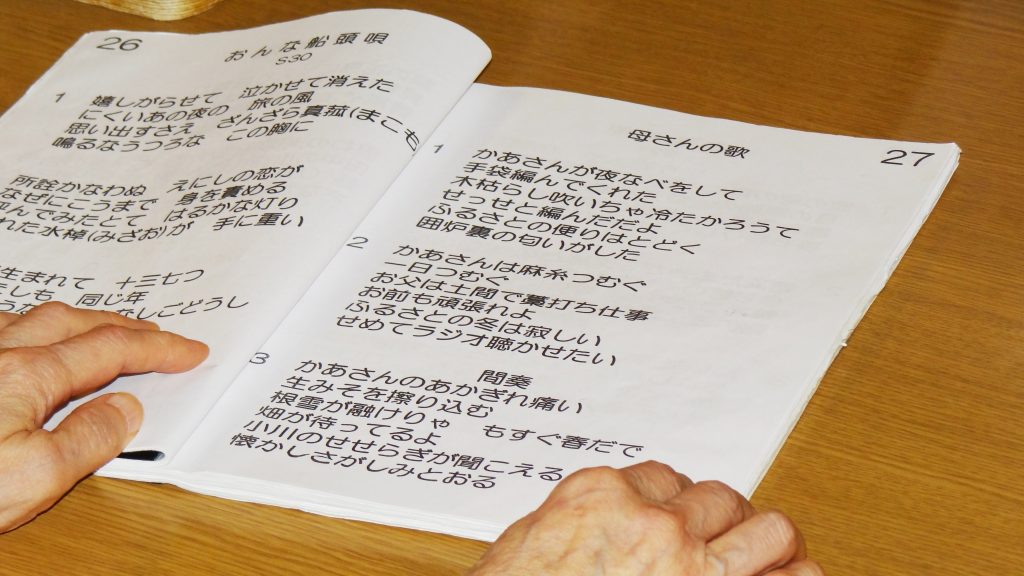 26
おんな船頭唄
S30
1 嬉しがらせて 泣かせて消えた
にくいあの夜の 旅の風
思い出すさえ ざんざら真菰(まこも)
鳴るなうつろな この胸に
所詮かなわぬ えにしの恋が
なぜにこうまで 身を責める
んでみたとて はるかな灯り
れた水棹(みざお)が 手に重い
生まれて 十三七つ
同じ年
しごどうし
27
母さんの歌
1 かあさんが夜なべをして
手袋編んでくれた
木枯らし吹いちゃ冷たかろうて
せっせと編んだだよ
ふるさとの便りはとどく
囲炉裏の匂いがした
2 かあさんは麻糸つむぐ
一日つむぐ
お父は土間で藁打ち仕事
お前も頑張れよ
ふるさとの冬は寂しい
せめてラジオ聴かせたい
間奏
3 かあさんのあかぎれ痛い
生みそを擦り込む
根雪が融けりゃ もすぐ春だで
畑が待ってるよ
小川のせせらぎが聞こえる
懐かしさがしみとおる